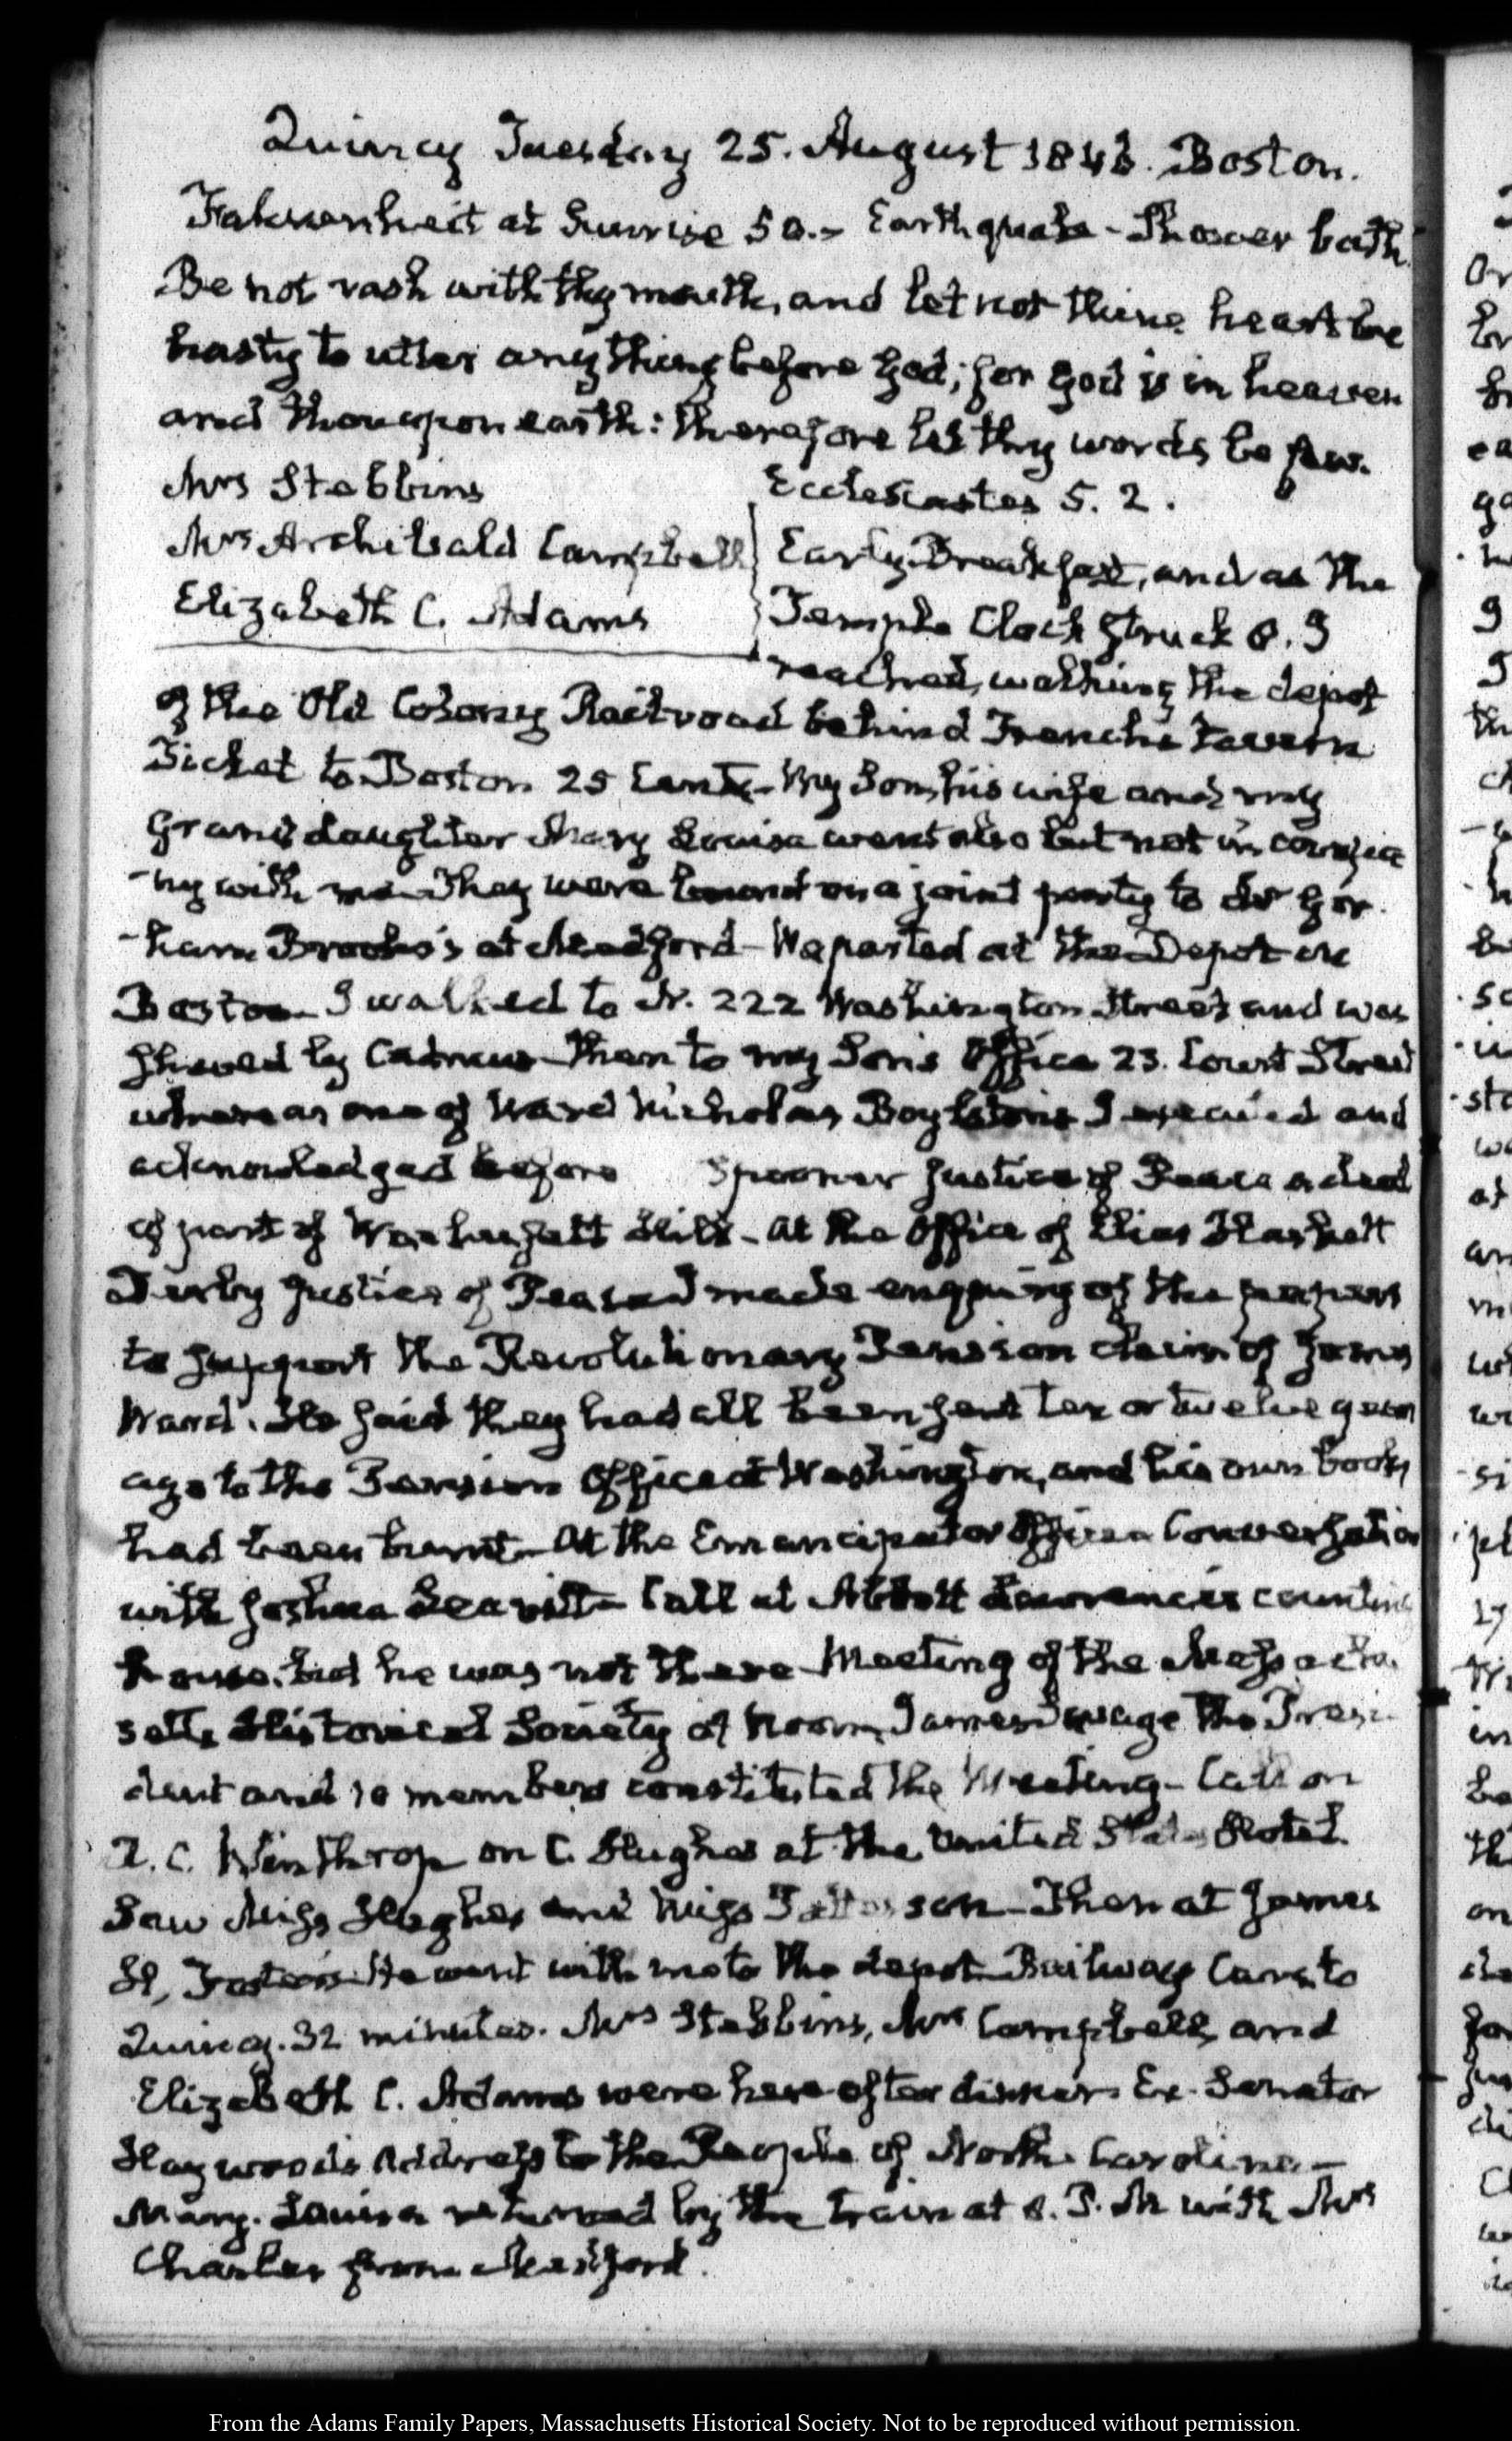 Quincy Tuesday 25. August 1846. Boston.
Fahrenheit at Sunrise 50.- Earthquake - Shower bath
Be not rash with thy mouth, and let not thine heart be
hasty to utter anything before God; for God is in heaven
and thou upon earth: therefore let thy words be few.
Mrs Stebbins
Ecclesiastes 5. 2.
Mrs Archibald Campbell
Elizabeth C. Adams
Early Breakfast, and as the
Temple Clock struck 8. I
reached, walking the depot
of the Old Colony Railroad behind French's tavern
Ticket to Boston 25 Cents - My Son, his wife and my
Grand daughter Mary Louisa went also but not in compa
-ny with me They were bound on a joint party to Gor
-ham Brooks's at Medford - We parted at the Depot in
Boston - I walked to N. 222 Washington Street and was
shaved by Cadmus - Then to my Son's Office 23. Court Street
where as one of Ward Nicholas Boylston's I executed and
acknowledged before Spooner Justice of Peace a deed
of part of Hill - At the Office of Elias Haskett
Derby Justice of Peace I made enquiry of the papers
to support the Revolutionary Pension claim of
Ward. He said they had all been sent ten or twelve years
ago to the Pension Office at Washington, and his own books
had been burnt - At the Emancipator Office a Conversation
with Joshua Leavitt - Call at Abbott Lawrence's counting
house, but he was not there - Meeting of the Massachu
setts Historical Society at Noon, James Savage the Presi
dent and 10 members constituted the Meeting - Call on
C. Winthrop on C. Hughes at the United States Hotel.
Saw Miss Hughes and Miss Patterson - Then at James
H, Foster's - He went with me to the depot - Railway Cars to
Quincy. 32 minutes. Mrs Stebbins, Mrs Campbell, and
Elizabeth C. Adams were here after dinner. Ex-Senator
Haywood's Address to the People of North Carolina -
Mary. Louisa returned by the train at 8. P. M with Mrs
Charles from Medford.
From the Adams Family Papers, Massachusetts Historical Society. Not to be reproduced without permission.